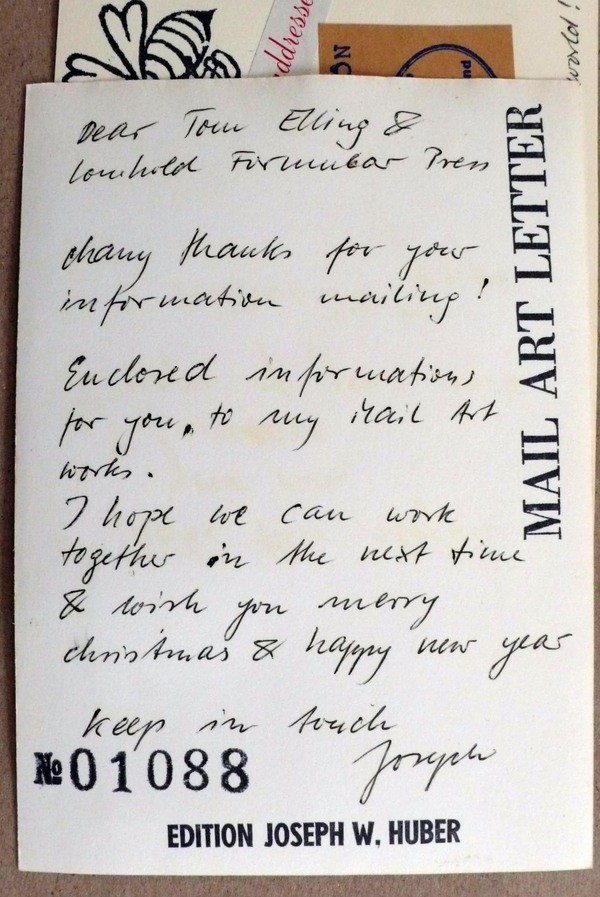 addresse
ON
nd
world!
Dear Tom Elling &
Formular Press
Many thanks for your
information mailing!
Enclosed informations
for you, to my Mail Art
works.
I hope we can work
together in the next time
& wish you merry
christmas & happy new year
keep in touch
Joseph
MAIL ART LETTER
No 01088
EDITION JOSEPH W. HUBER